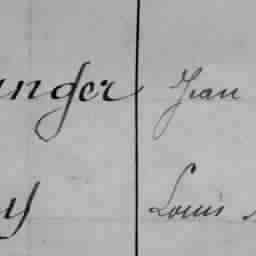 anger Jean
y Louis